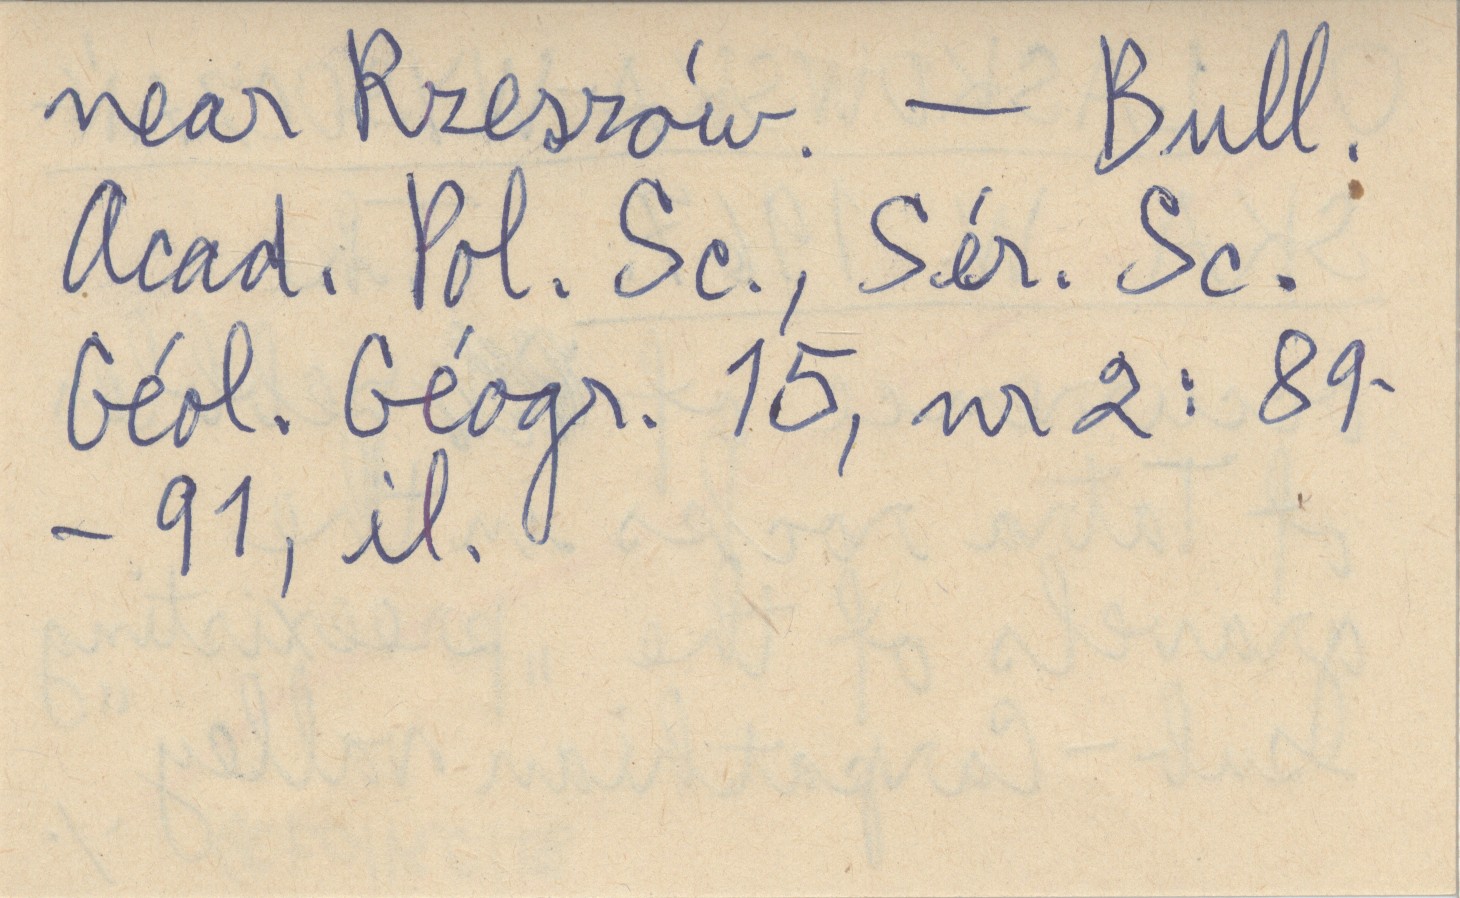 near Rzeszów. — Bull.
Acad. Pol. Sc., Sér. Sc.
Géol. Géogr. 15, nr 2: 89-
- 91, il.